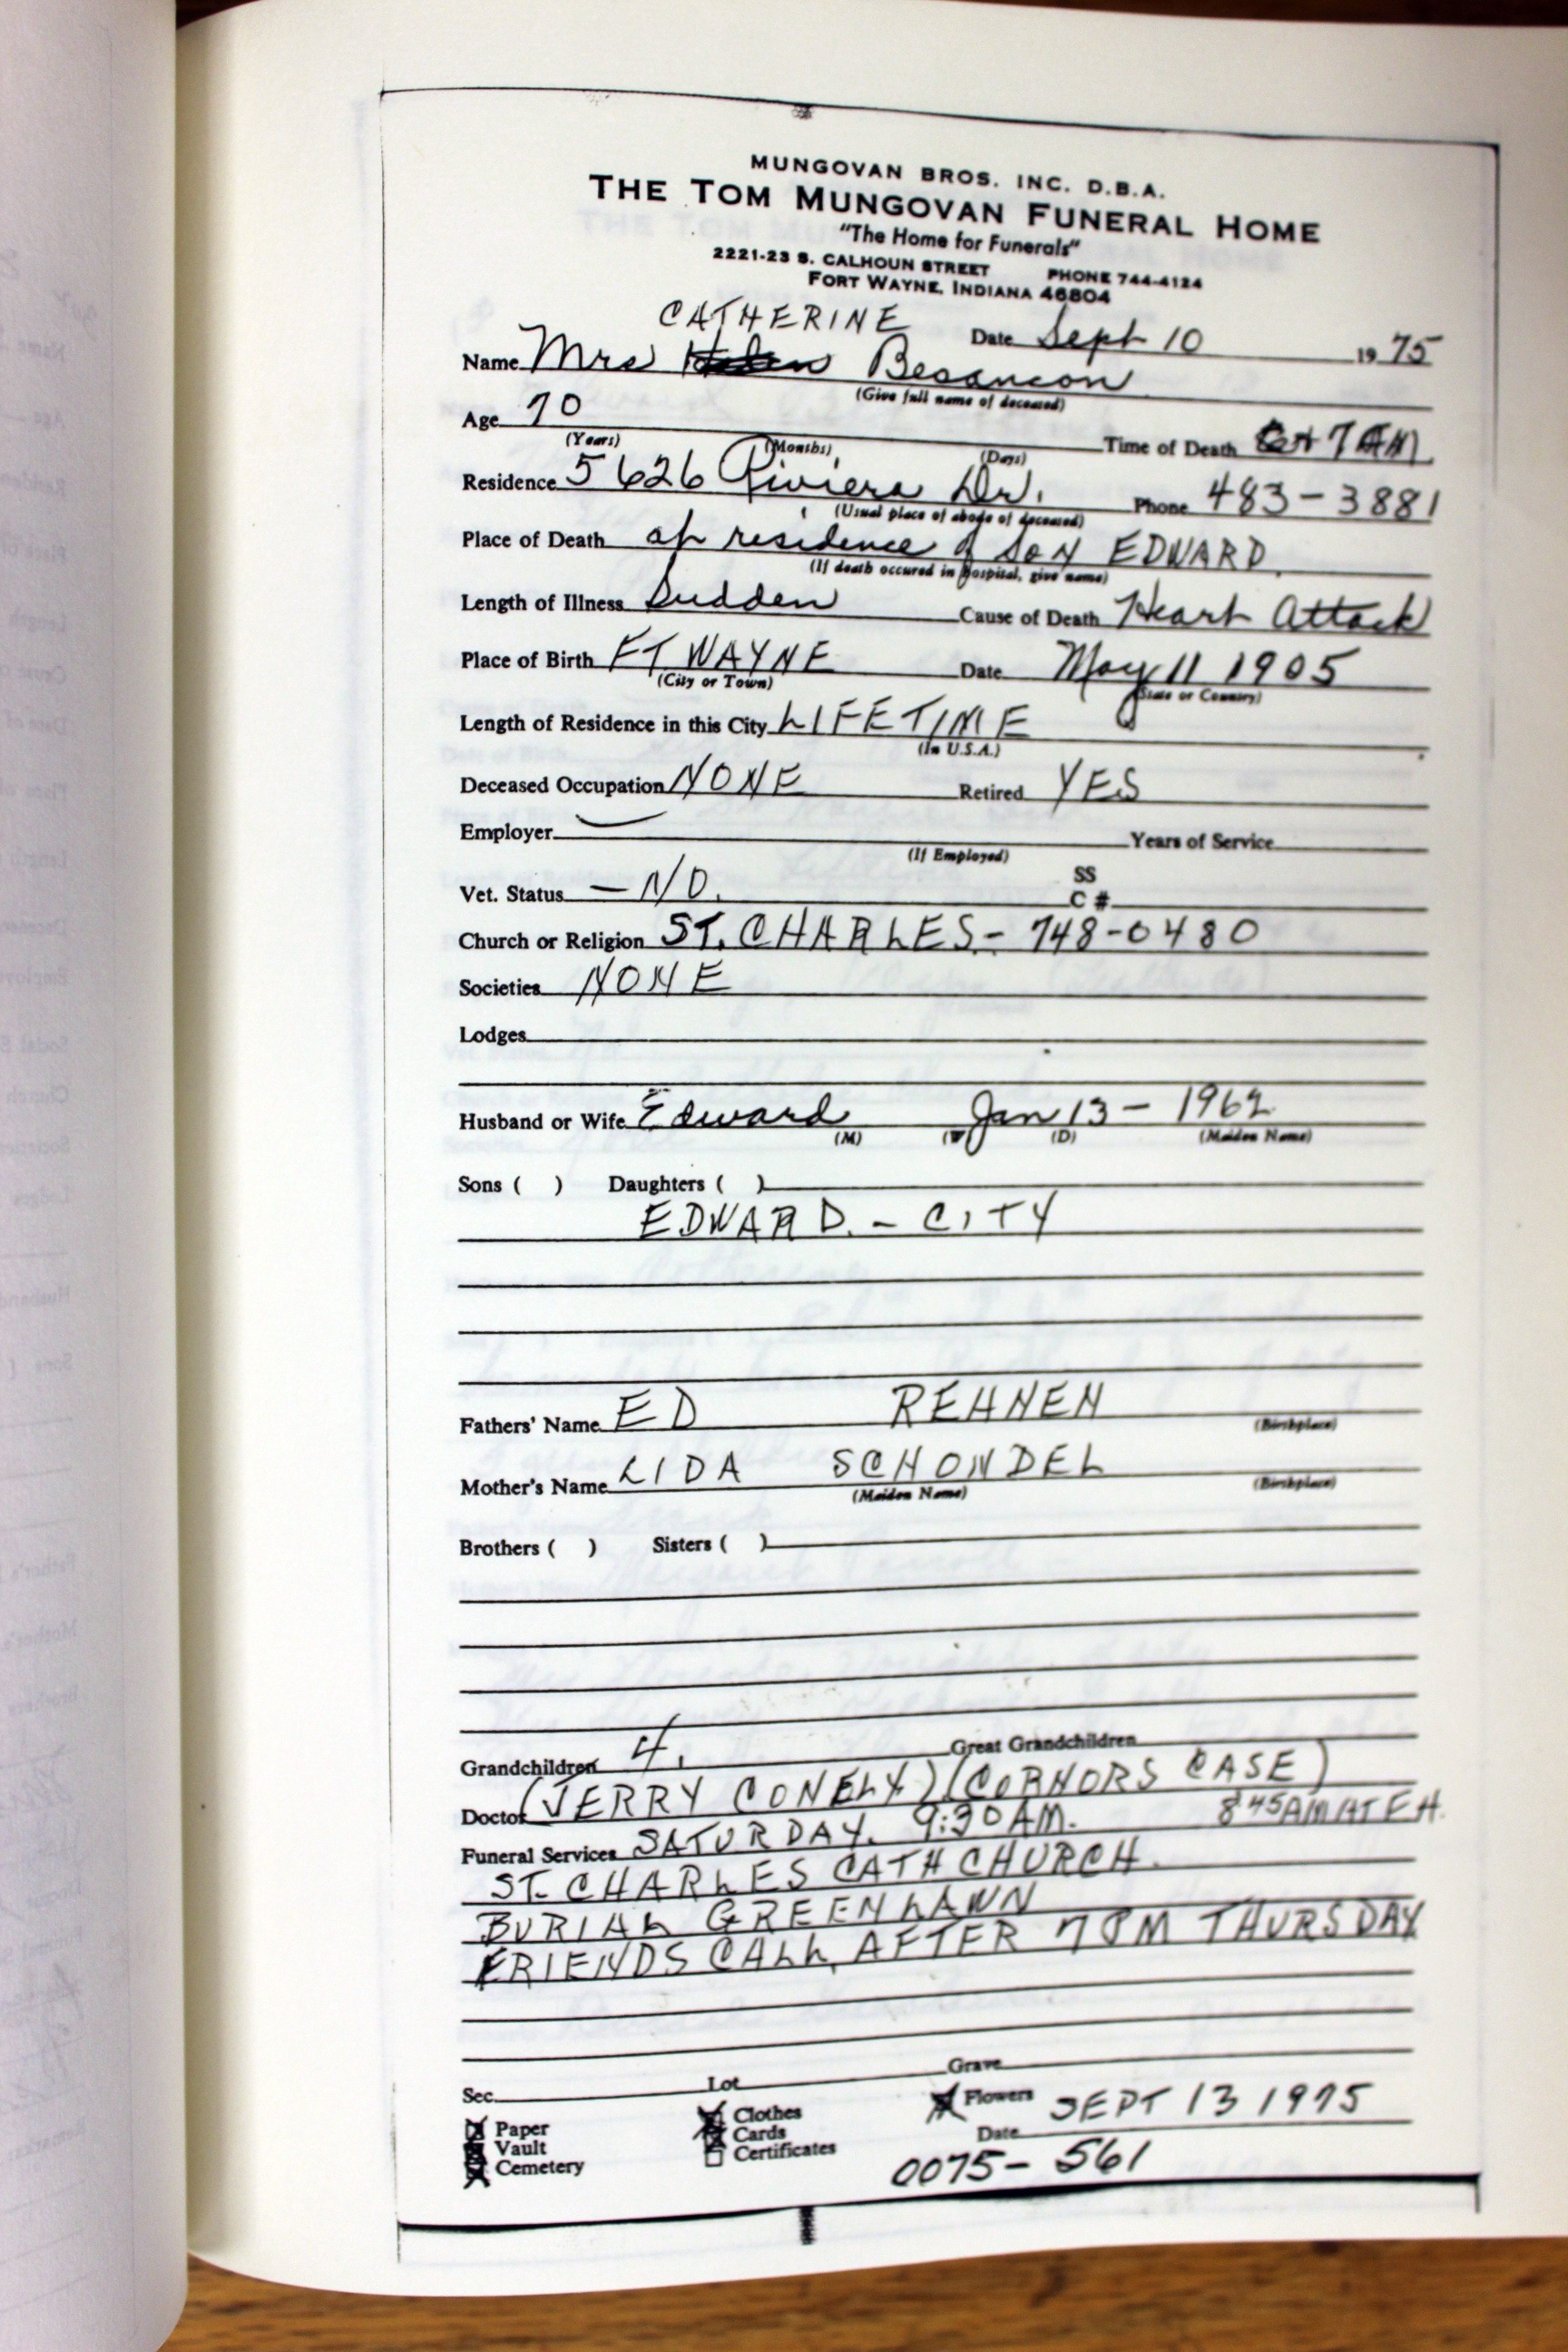 MUNGOVAN BROS. INC. D.B.A.
THE TOM MUNGOVAN FUNERAL HOME
"The Home for Funerals"
2221-23 S. CALHOUN STREET PHONE 744-4124
FORT WAYNE, INDIANA 46804
CATHERINE
Date Sept 10 1975
Name Mrs Helen Besancon
(Give full name of deceased)
Age 70 Time of Death 7 AM
(Years) (Months) (Days)
Residence 5626 Riviera Dr. Phone 483-3881
(Usual place of abode of deceased)
Place of Death at residence of SON EDWARD
(If death occured in hospital, give name)
Length of Illness Sudden Cause of Death Heart Attack
Place of Birth FT WAYNE Date May 11 1905
(City or Town) (State or Country)
Length of Residence in this City LIFETIME
(In U.S.A.)
Deceased Occupation NONE Retired YES
Employer — Years of Service
(If Employed)
Vet. Status — NO. SS C #
Church or Religion ST. CHARLES - 748-0480
Societies NONE
Lodges
Husband or Wife Edward Jan 13 - 1962
(M) (W) (D) (Maiden Name)
Sons ( ) Daughters ( )
EDWARD. - CITY
Fathers' Name ED REHNEN (Birthplace)
Mother's Name LIDA SCHONDEL (Birthplace)
(Maiden Name)
Brothers ( ) Sisters ( )
Grandchildren 4. Great Grandchildren
Doctor (JERRY CONELY) (CORNORS CASE)
Funeral Services SATURDAY. 9:30 AM. 8 45 AM AT F H.
ST. CHARLES CATH CHURCH.
BURIAL GREENLAWN
FRIENDS CALL AFTER 7 PM THURSDAY
Sec. Lot Grave
Paper Clothes Flowers SEPT 13 1975
Vault Cards Date
Cemetery Certificates
0075-561